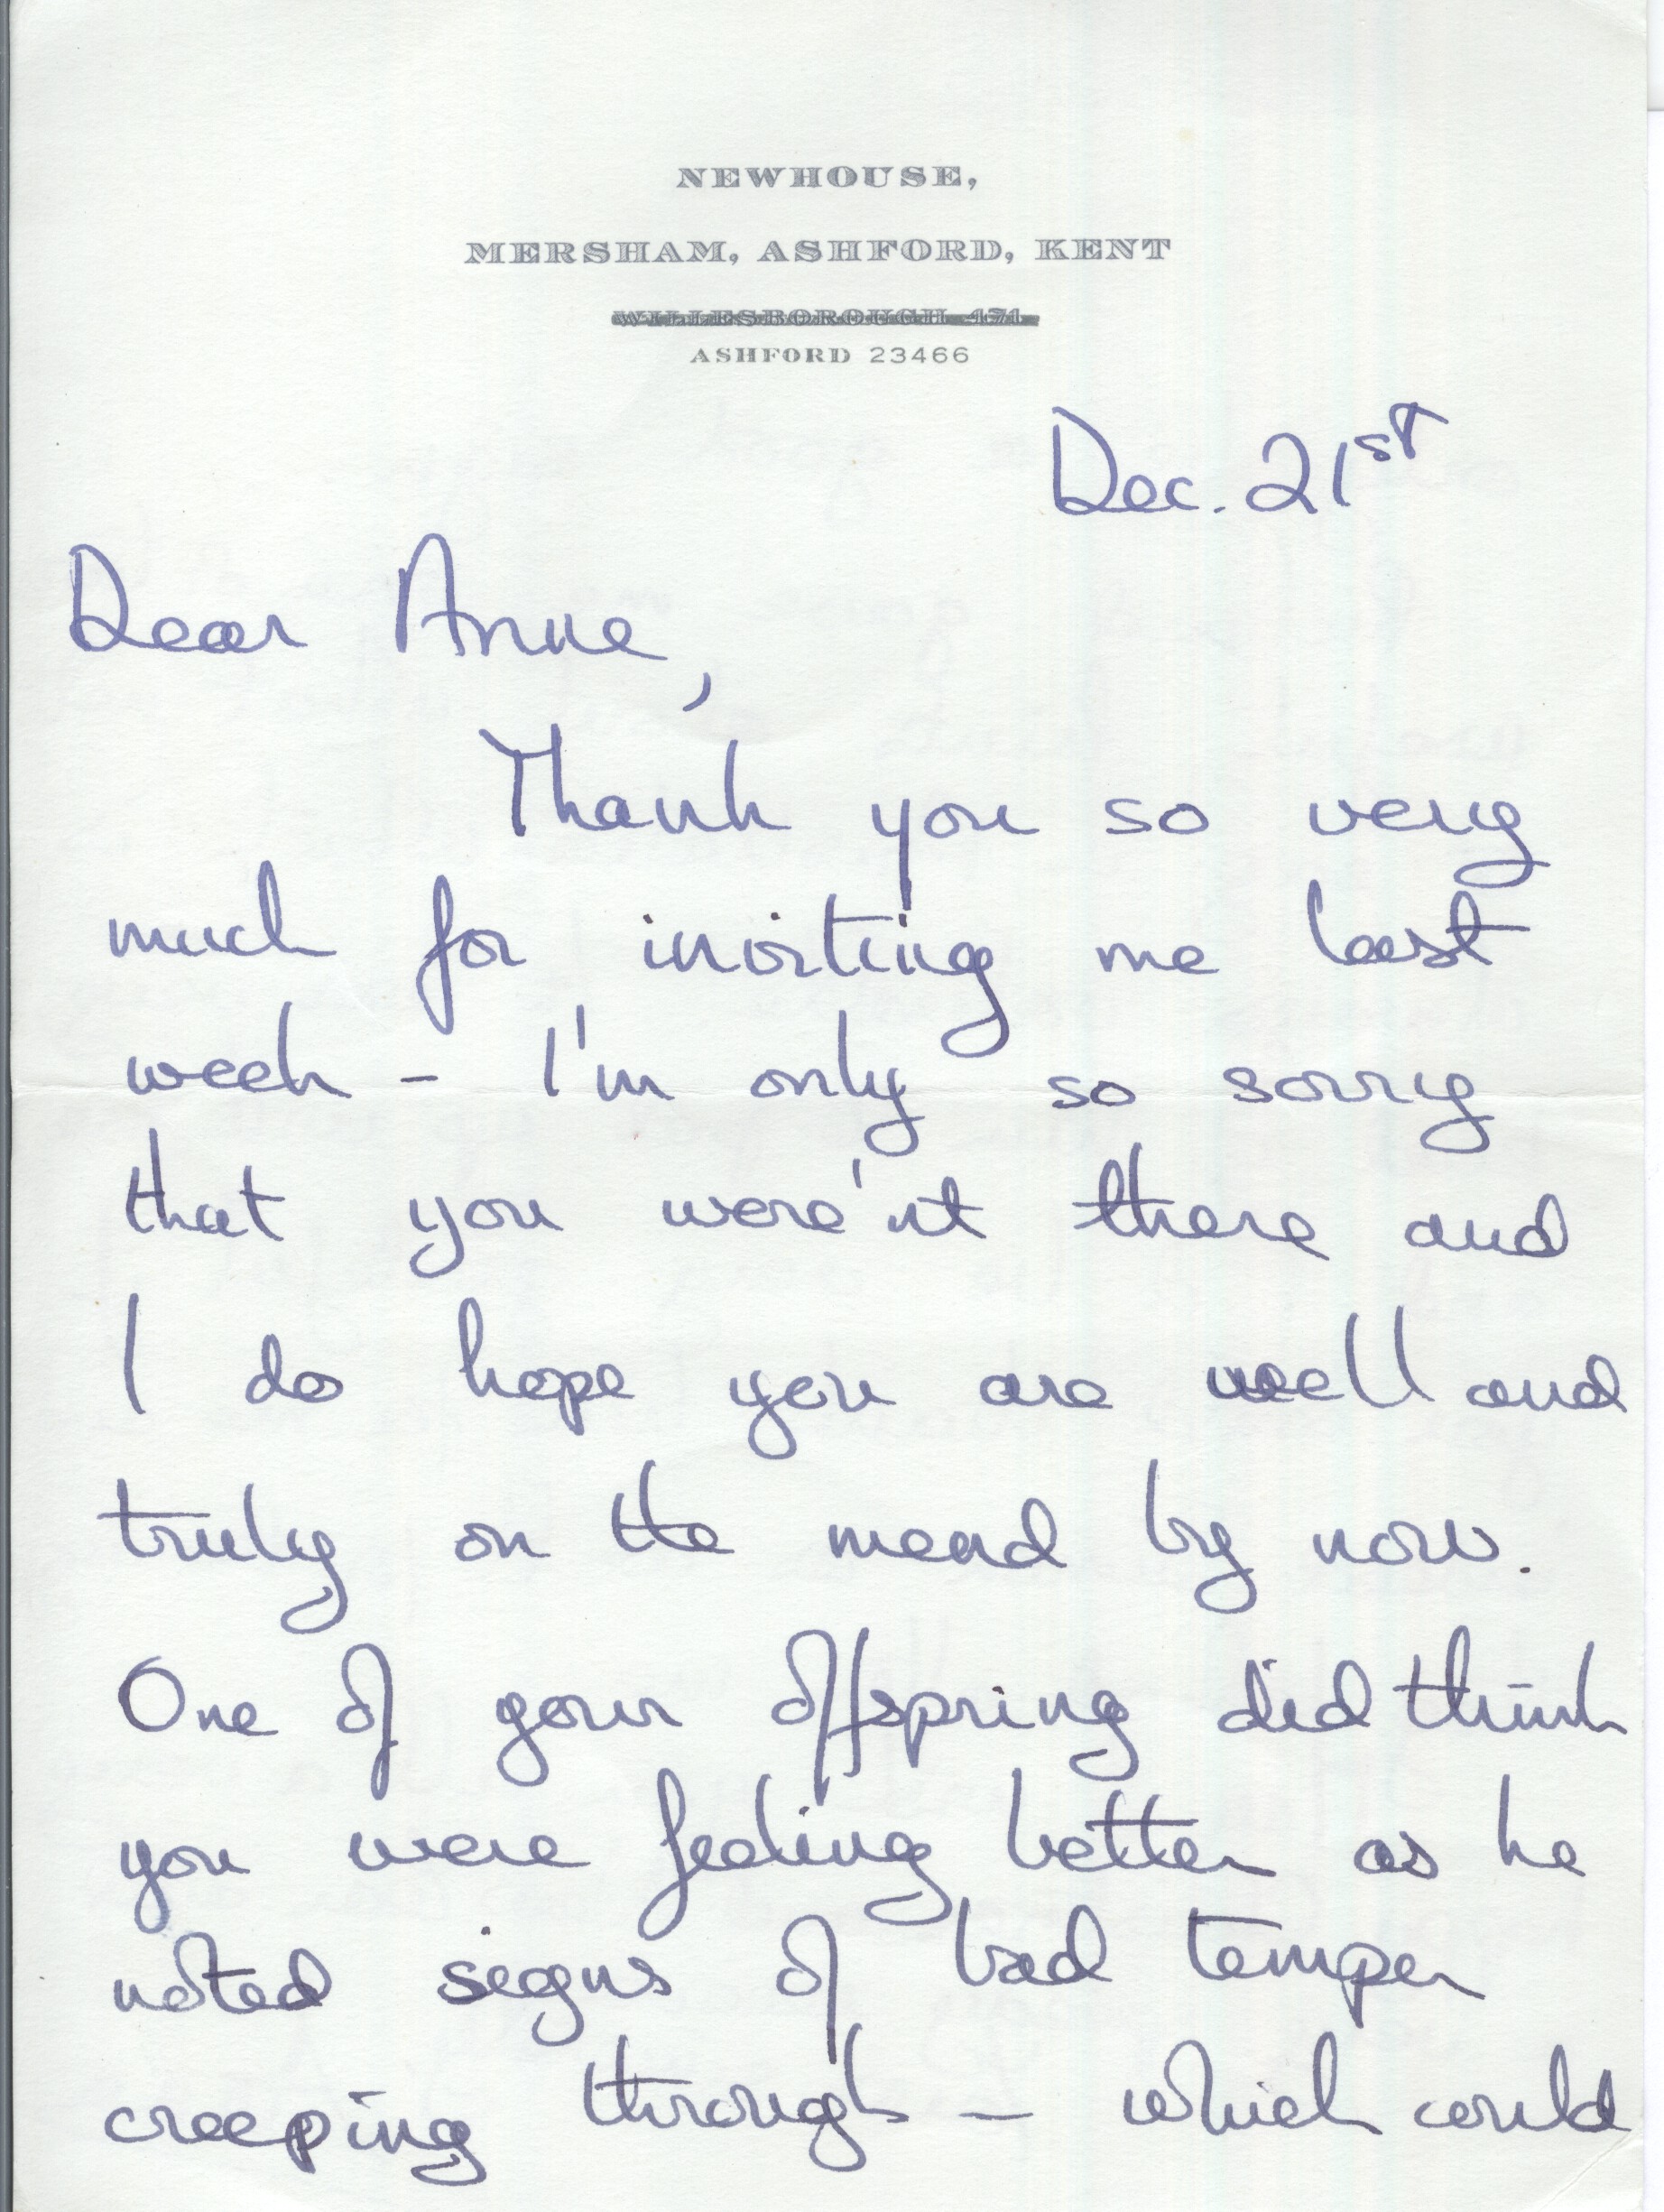 NEWHOUSE,
MERSHAM, ASHFORD, KENT
WILLESBOROUGH 471
ASHFORD 23466
Dec. 21st
Dear Anne,
Thank you so very
much for inviting me last
week - I'm only so sorry
that you were'nt there and
I do hope you are well and
truly on the mend by now.
One of your offspring did think
you were feeling better as he
noted signs of bad temper
creeping through - which could